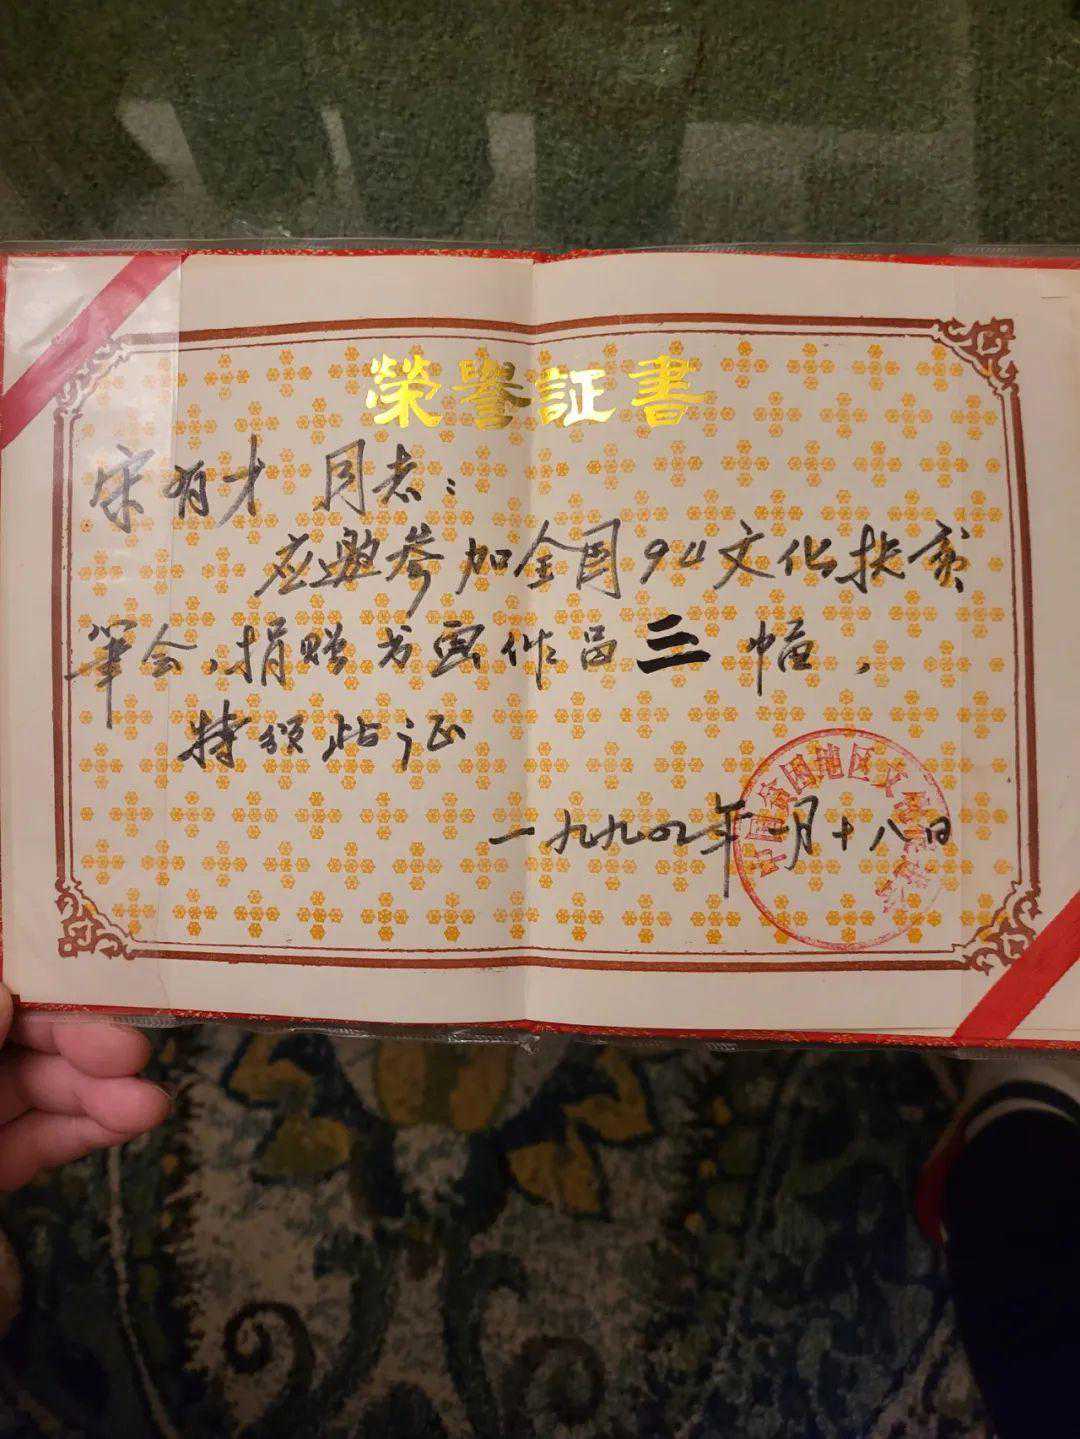 榮譽証書
宋有才 同志：
应邀参加全国94文化扶贫
筆会，捐赠书画作品三幅，
特颁此证
一九九四年一月十八日
中国贫困地区文